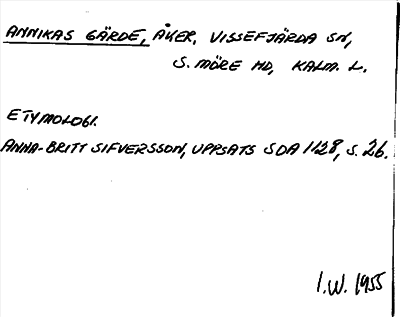 ANNIKAS GÄRDE, ÅKER, VISSEFJÄRDA SN,
S. MÖRE HD, KALM. L.
ETYMOLOGI.
ANNA-BRITT SIFVERSSON, UPPSATS SOA 1128, S. 26.
I.W. 1955